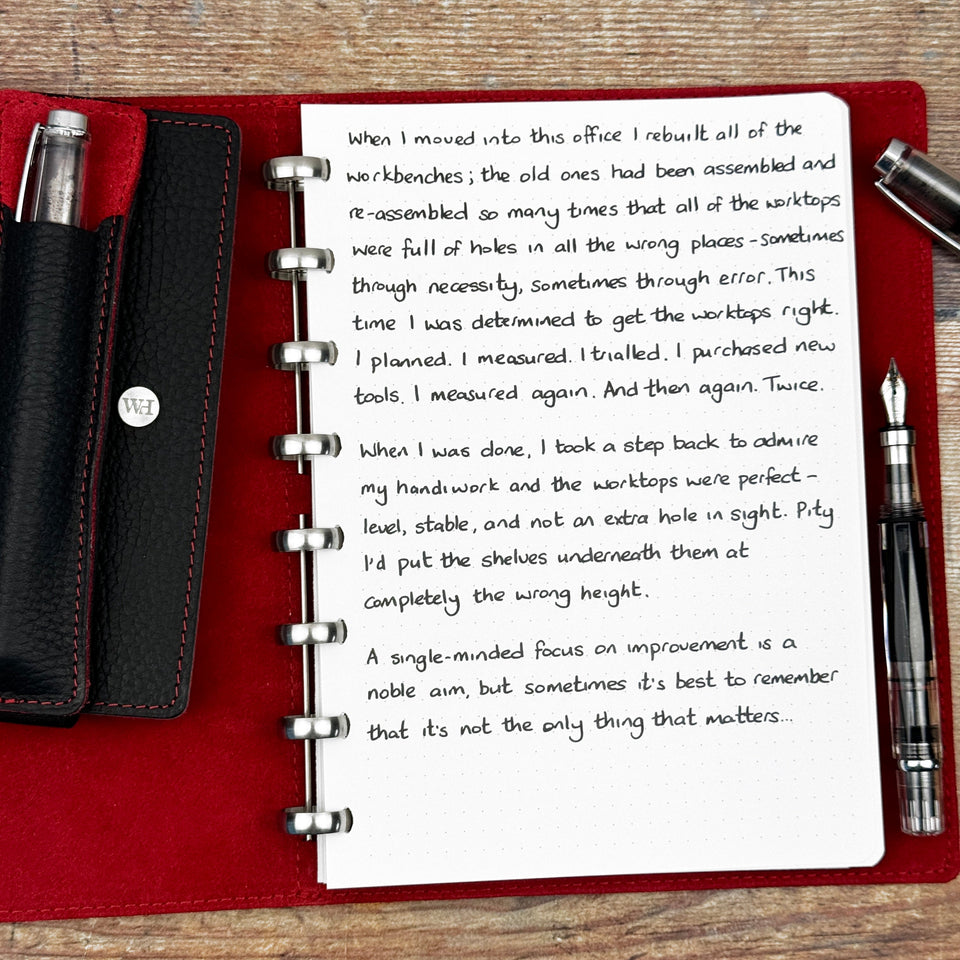 When I moved into this office I rebuilt all of the
workbenches; the old ones had been assembled and
re-assembled so many times that all of the worktops
were full of holes in all the wrong places - sometimes
through necessity, sometimes through error. This
time I was determined to get the worktops right.
I planned. I measured. I trialled. I purchased new
tools. I measured again. And then again. Twice.
When I was done, I took a step back to admire
my handiwork and the worktops were perfect -
level, stable, and not an extra hole in sight. Pity
I'd put the shelves underneath them at
completely the wrong height.
A single-minded focus on improvement is a
noble aim, but sometimes it's best to remember
that it's not the only thing that matters...
WH